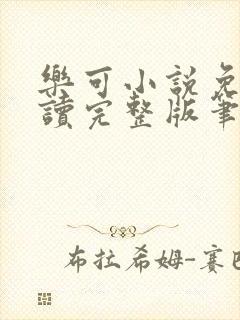 樂可小說免
讀完整版筆
布拉希姆-賽巴